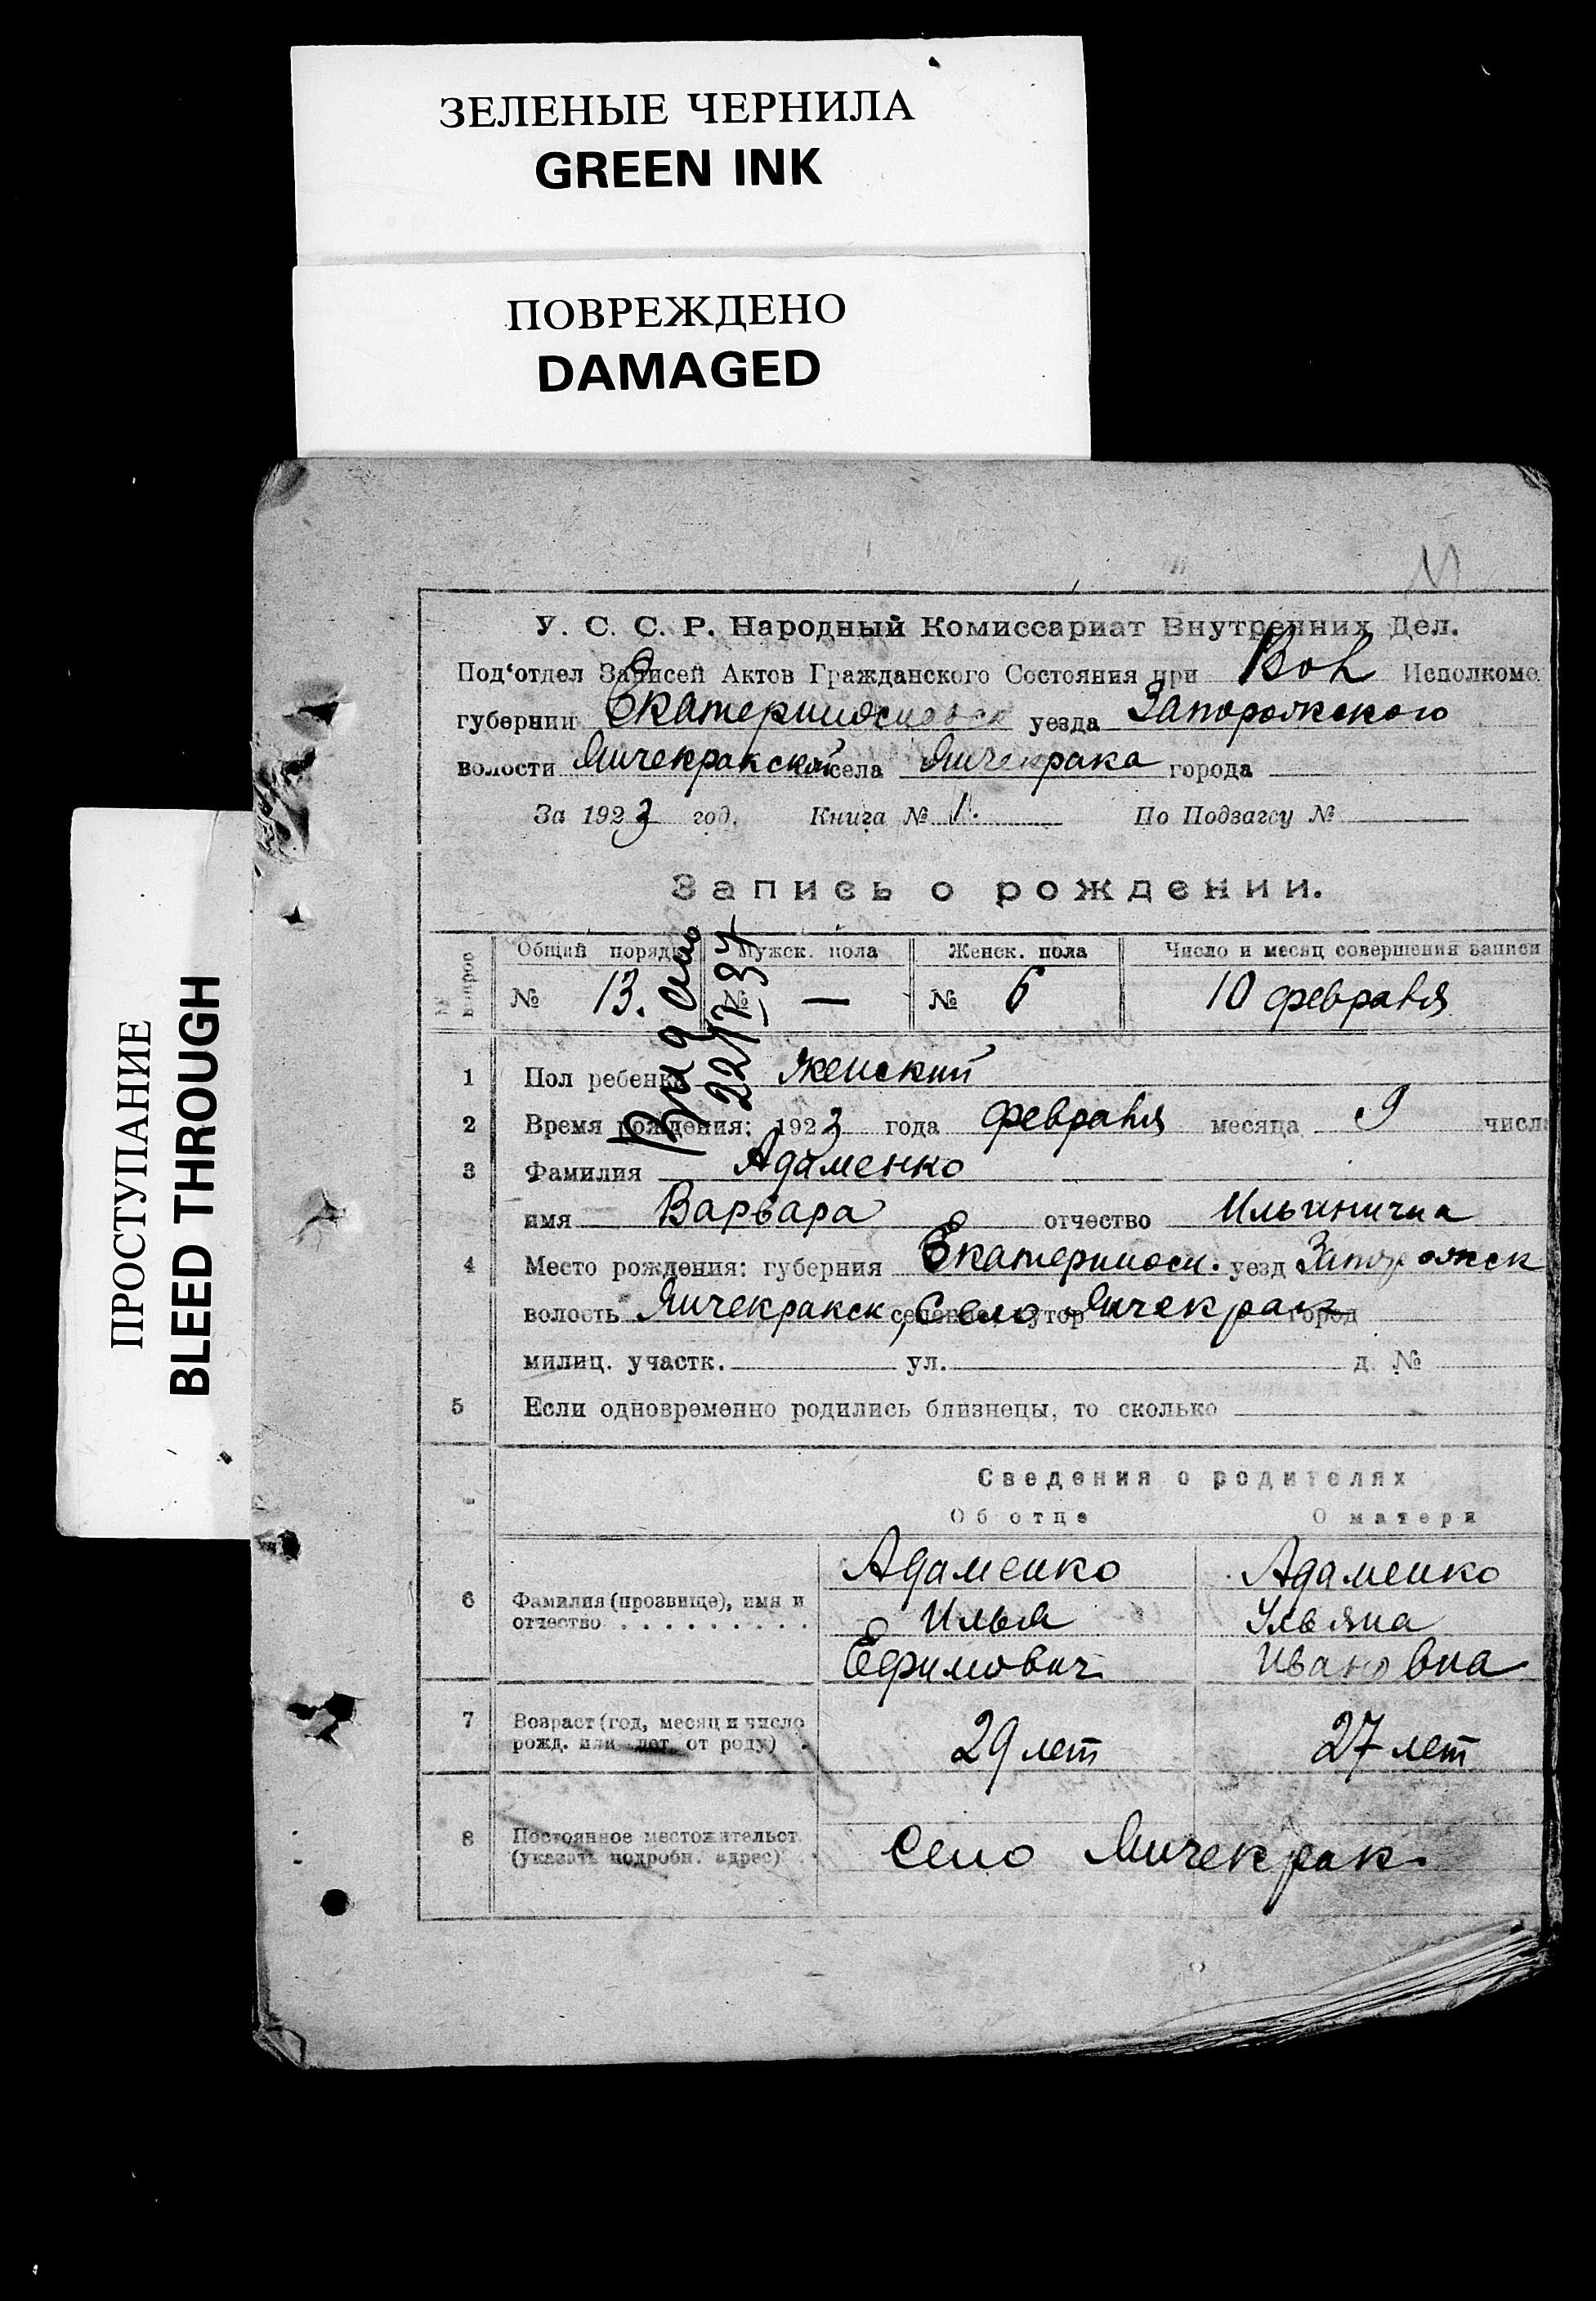 ЗЕЛЕНЫЕ ЧЕРНИЛА
GREEN INK
ПОВРЕЖДЕНО
DAMAGED
ПРОСТУПАНИЕ
BLEED THROUGH
У. С. С. Р. Народный Комиссариат Внутренних Дел.
Под‘отдел Записей Актов Гражданского Состояния при Вол Исполкоме
губернии Екатеринославск уезда Запорожского
волости Янчекракской села Янчекрака города
За 1923 год. Книга № 1. По Подзагсу №
Запись о рождении.
Общий порядк Мужск. пола Женск. пола Число и месяц совершения записи
№ 13. № — № 6 10 февраля
22/1 37
1 Пол ребенка женский
2 Время рождения: 1923 года февраля месяца 9 числа
3 Фамилия Адаменко
имя Варвара отчество Ильинична
4 Место рождения: губерния Екатериносл. уезд Запорожск
волость Янчекракск, село хутор Янчекрак город
милиц. участк. ул. д. №
5 Если одновременно родились близнецы, то сколько
Сведения о родителях
Об отце О матери
Адаменко Адаменко
6 Фамилия (прозвище), имя и отчество Илья Ульяна
Ефимович Ивановна
7 Возраст (год, месяц и число рожд. или лет от роду) 29 лет 27 лет
8 Постоянное местожительст. (указать подробн. адрес) Село Янчекрак